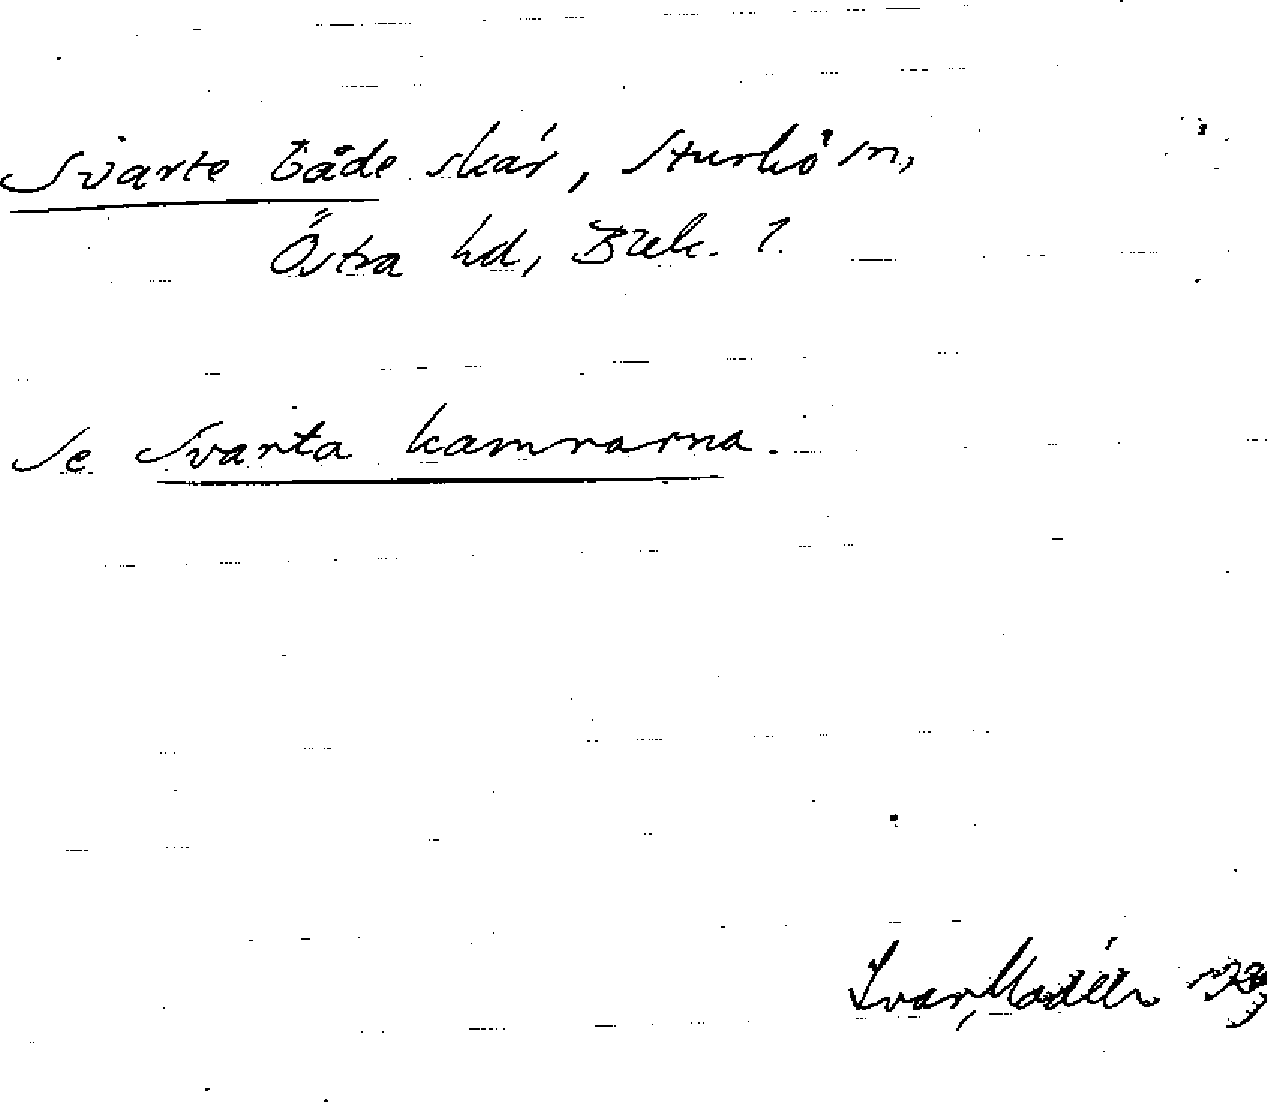 Svarte både skär, Sturkö sn,
Östra hd, Blek. l.
Se Svarta kamrarna.
Ivar Modéer